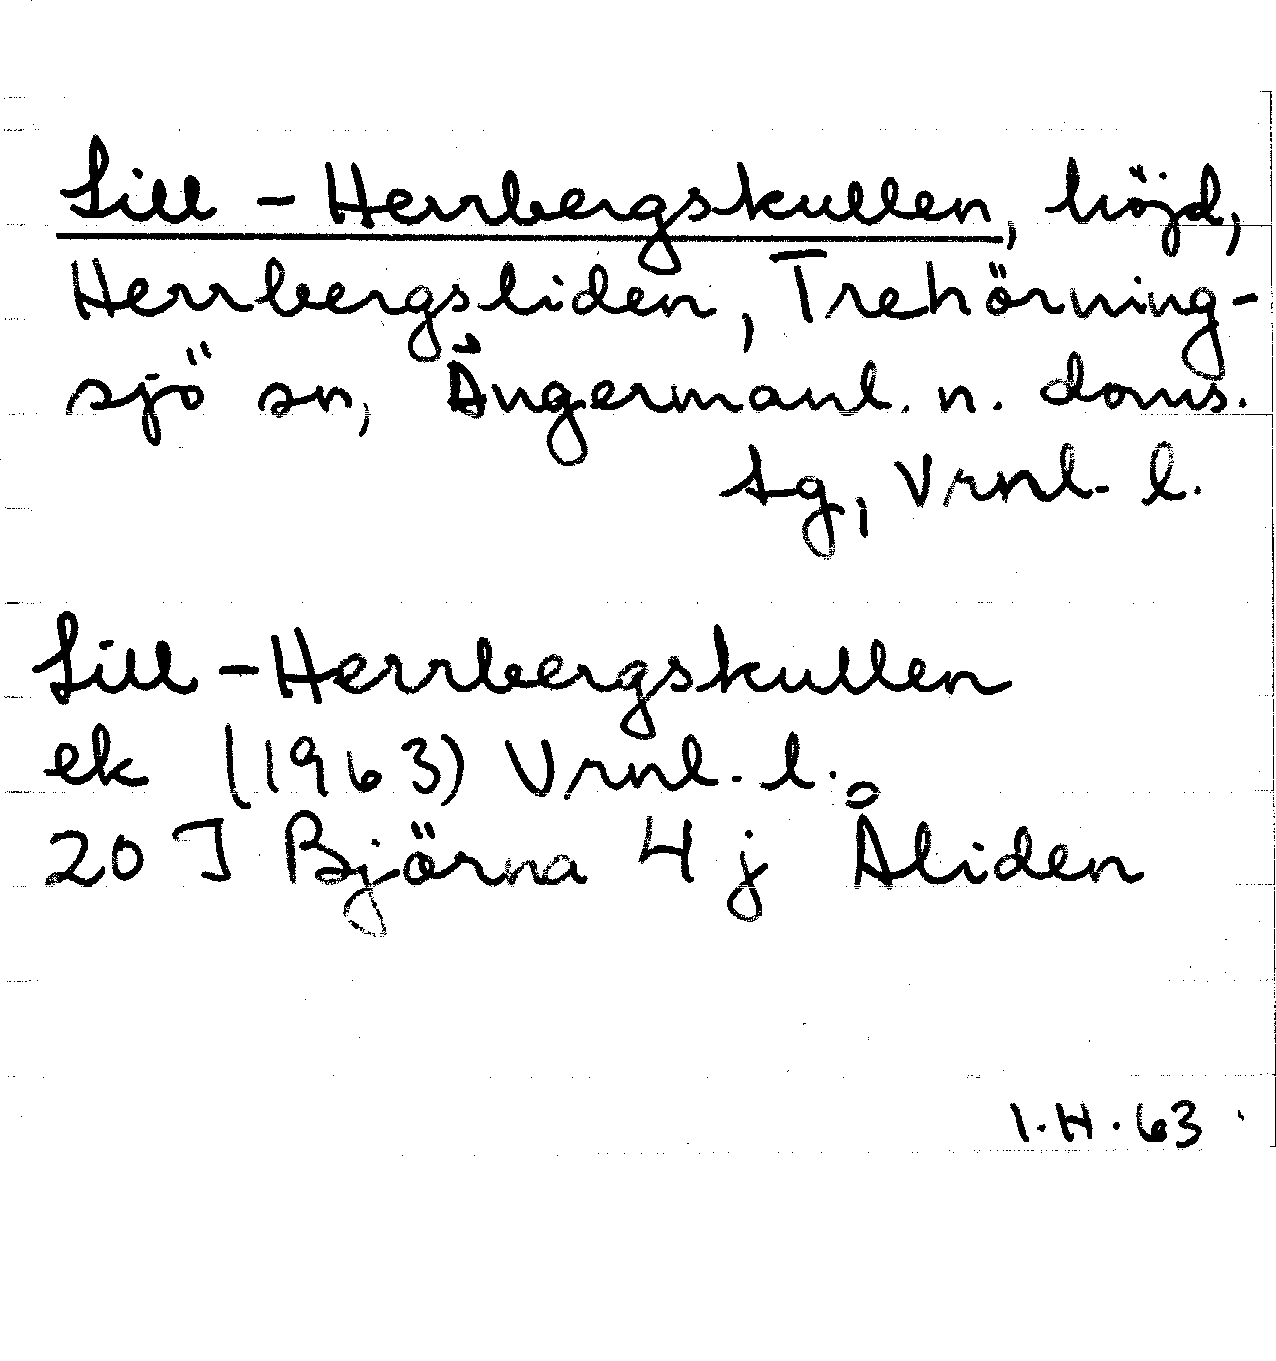 Lill-Herrbergskullen, höjd,
Herrbergsliden, Trehörning-
sjö sn, Ångermanl. n. doms.
sg, Vrnl. l.
Lill-Herrbergskullen
ek (1963) Vrnl. l.
20 J Björna 4 j Åliden
I.H.63